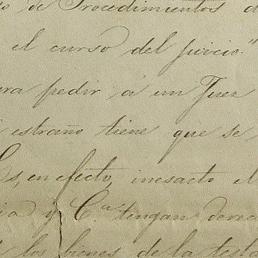 de Procedimientos d
el curso del juicio."
ra pedir á un Juez
estraño tiene que se
Es, en efecto, inesacto el
ia y C.ª tengan derec
los bienes de la testa